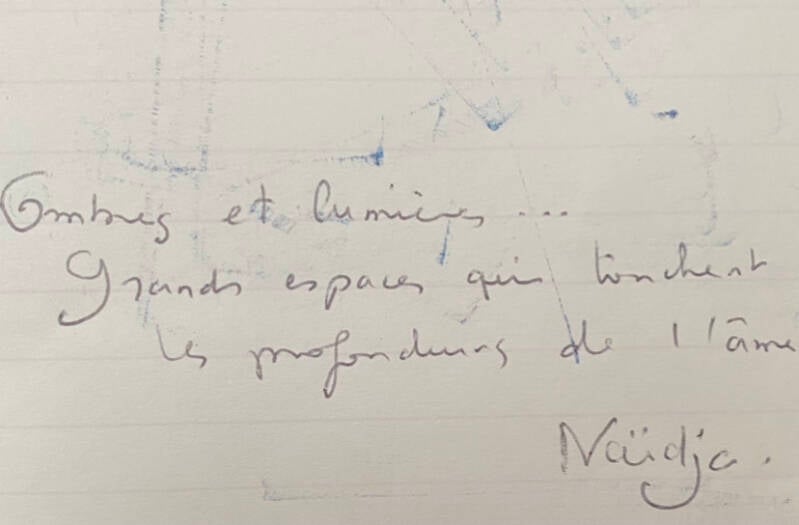 Ombres et lumières...
Grands espaces qui touchent
les profondeurs de l'âme
Naïdja.